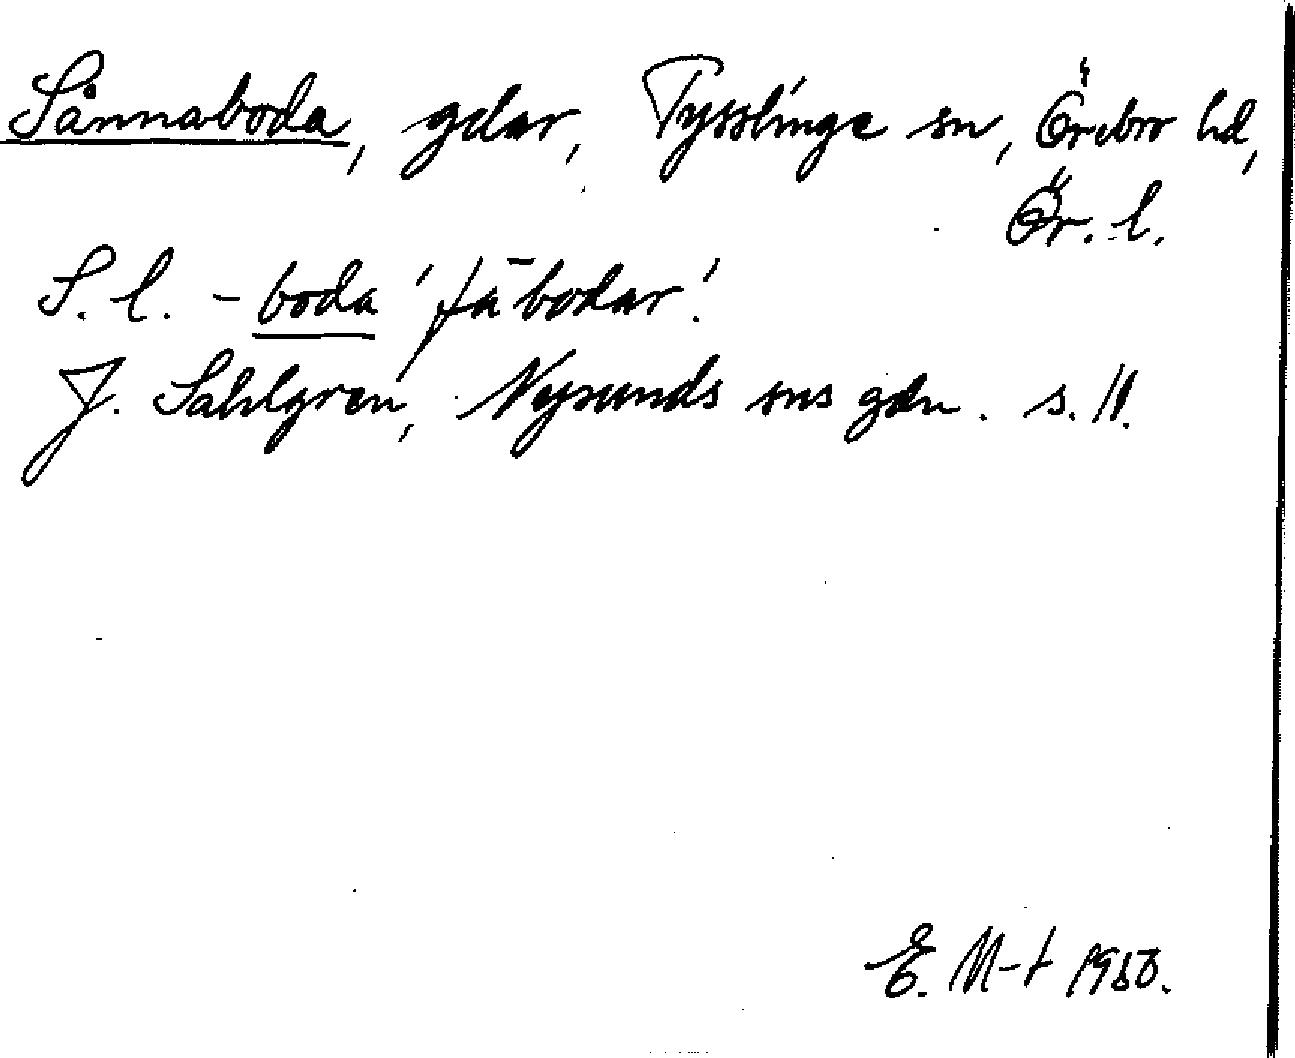 Sånnaboda, gdar, Tysslinge sn, Örebro hd,
Ör. l.
S. l. -boda 'fäbodar'.
J. Sahlgren, Nysunds sns gdn. s. 11.
E. M-t